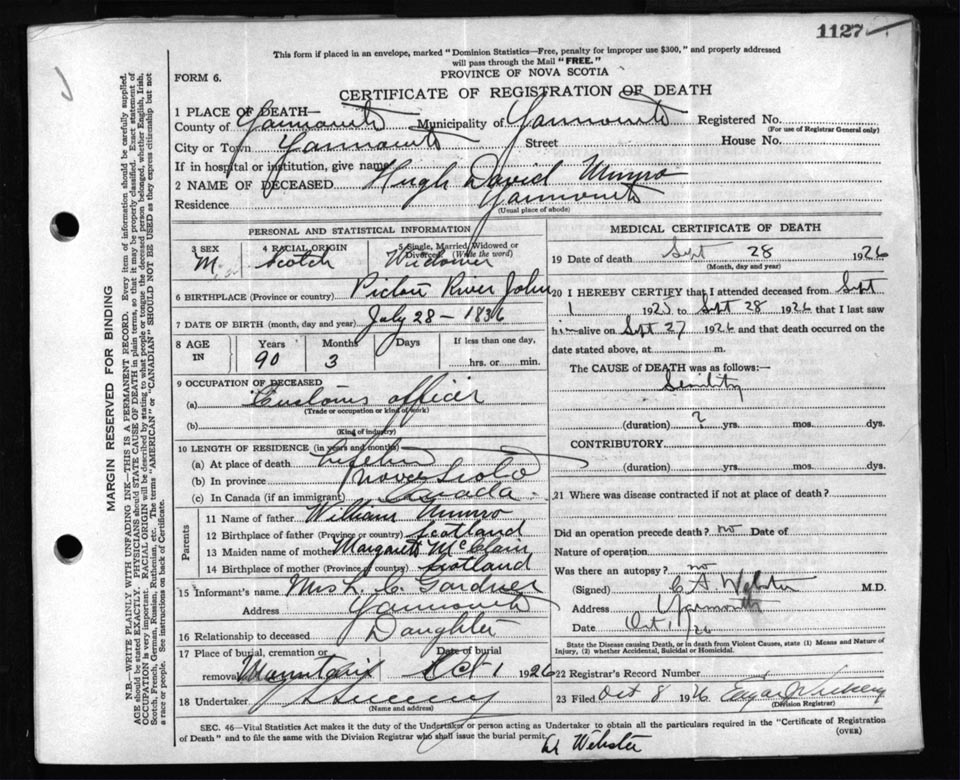 1127
This form if placed in an envelope, marked "Dominion Statistics—Free, penalty for improper use $300," and properly addressed
will pass through the Mail "FREE."
FORM 6.
PROVINCE OF NOVA SCOTIA
CERTIFICATE OF REGISTRATION OF DEATH
1 PLACE OF DEATH—
County of Yarmouth Municipality of Yarmouth Registered No.
(For use of Registrar General only)
City or Town Yarmouth Street House No.
If in hospital or institution, give name
2 NAME OF DECEASED Hugh David Munro
Residence Yarmouth
(Usual place of abode)
PERSONAL AND STATISTICAL INFORMATION
3 SEX 4 RACIAL ORIGIN 5 Single, Married, Widowed or Divorced. (Write the word)
M. Scotch Widower
6 BIRTHPLACE (Province or country) Pictou River John
7 DATE OF BIRTH (month, day and year) July 28 - 1836
8 AGE IN Years Months Days If less than one day,
90 3 hrs. or min.
9 OCCUPATION OF DECEASED
(a) Customs officer
(Trade or occupation or kind of work)
(b)
(Kind of industry)
10 LENGTH OF RESIDENCE (in years and months)
(a) At place of death
(b) In province Nova Scotia
(c) In Canada (if an immigrant) Canada
Parents
11 Name of father William Munro
12 Birthplace of father (Province or country) Scotland
13 Maiden name of mother Margaret McClain
14 Birthplace of mother (Province or country) Scotland
15 Informant's name Mrs L. C. Gardner
Address Yarmouth
16 Relationship to deceased Daughter
17 Place of burial, cremation or removal Date of burial
Mountain Oct 1 1926
18 Undertaker
(Name and address)
MEDICAL CERTIFICATE OF DEATH
19 Date of death Sept 28 1926
(Month, day and year)
20 I HEREBY CERTIFY that I attended deceased from Sept
1 1925 to Sept 28 1926 that I last saw
him alive on Sept 27 1926 and that death occurred on the
date stated above, at m.
The CAUSE of DEATH was as follows:—
Senility
(duration) ? yrs. mos. dys.
CONTRIBUTORY
(duration) yrs. mos. dys.
21 Where was disease contracted if not at place of death?
Did an operation precede death? no Date of
Nature of operation
Was there an autopsy? no
(Signed) C A Webster M.D.
Address Yarmouth
Date Oct 1/26
State the Disease causing Death, or in death from Violent Causes, state (1) Means and Nature of
Injury, (2) whether Accidental, Suicidal or Homicidal.
22 Registrar's Record Number
23 Filed Oct 8 1926
(Division Registrar)
SEC. 46—Vital Statistics Act makes it the duty of the Undertaker or person acting as Undertaker to obtain all the particulars required in the "Certificate of Registration
of Death" and to file the same with the Division Registrar who shall issue the burial permit.
(OVER)
Dr Webster
MARGIN RESERVED FOR BINDING
N.B.—WRITE PLAINLY WITH UNFADING INK—THIS IS A PERMANENT RECORD. Every item of information should be carefully supplied.
AGE should be stated EXACTLY. PHYSICIANS should STATE CAUSE OF DEATH in plain terms, so that it may be properly classified. Exact statement of
OCCUPATION is very important. RACIAL ORIGIN will be described by stating to what people or tongue the deceased person belonged, whether English, Irish,
Scotch, French, German, Russian, Ruthenian, etc. The terms "AMERICAN" or "CANADIAN" SHOULD NOT BE USED as they express citizenship but not
a race or people. See instructions on back of Certificate.